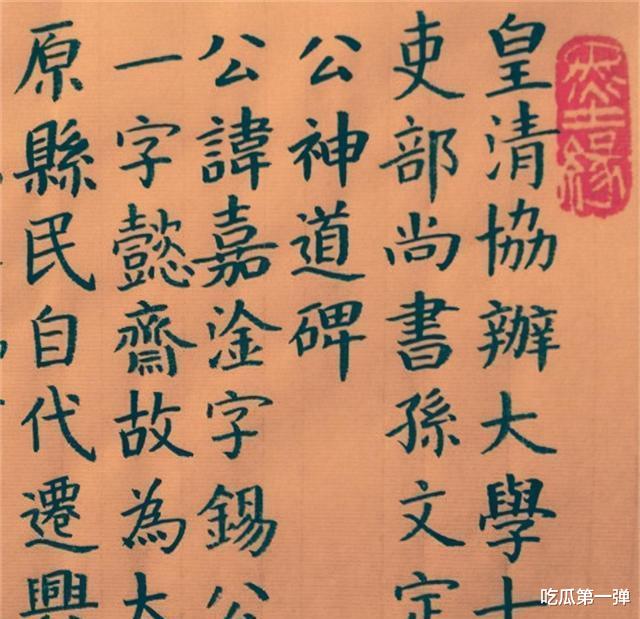 皇清協辦大學士
吏部尚書孫文定
公神道碑
公諱嘉淦字錫公
一字懿齋故為大
原縣民自代遷興
吃瓜第一弹